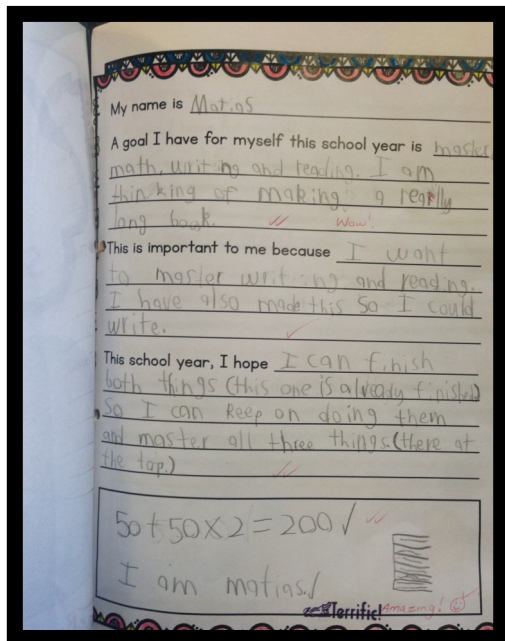 My name is Matias
A goal I have for myself this school year is master
math, writing and reading. I am
thinking of making a really
long book. Wow!
This is important to me because I want
to mastor writing and reading.
I have also made this so I could
write.
This school year, I hope I can finish
both things (this one is already finished)
so I can keep on doing them
and master all three things. (there at
the top.)
50+50×2=200
I am matias.
Terrific! Amazing!